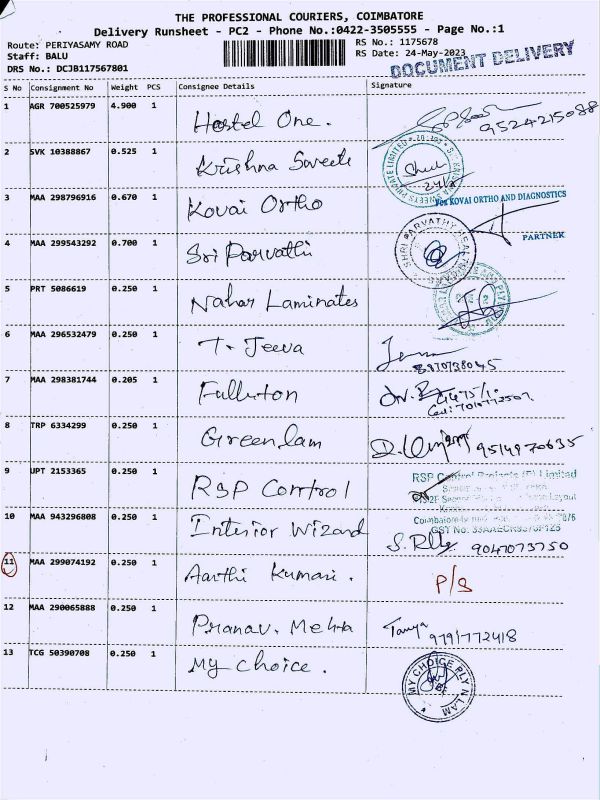 THE PROFESSIONAL COURIERS, COIMBATORE
Delivery Runsheet - PC2 - Phone No.:0422-3505555 - Page No.:1
Route: PERIYASAMY ROAD
Staff: BALU
DRS No.: DCJB117567801
RS No.: 1175678
RS Date: 24-May-2023
DOCUMENT DELIVERY
S No Consignment No Weight PCS Consignee Details Signature
1 AGR 700525979 4.900 1 Hostel One. 9524215088
2 SVK 10388867 0.525 1 Krishna Sweets
3 MAA 298796916 0.670 1 Kovai Ortho
For KOVAI ORTHO AND DIAGNOSTICS
PARTNER
4 MAA 299543292 0.700 1 Sri Parvathi
5 PRT 5086619 0.250 1 Nahar Laminates
6 MAA 296532479 0.250 1 T. Jeeva
7 MAA 298381744 0.205 1 Fullerton
8 TRP 6334299 0.250 1 Greenlam
9 UPT 2153365 0.250 1 RSP Control
RSP Control Limited
10 MAA 943296808 0.250 1 Interior Wizard 9047073750
11 MAA 299074192 0.250 1 Aarthi Kumari. P/S
12 MAA 290065888 0.250 1 Pranav. Mehta Tanya 9791772418
13 TCG 50390708 0.250 1 My choice.
MY CHOICE PLY N LAM